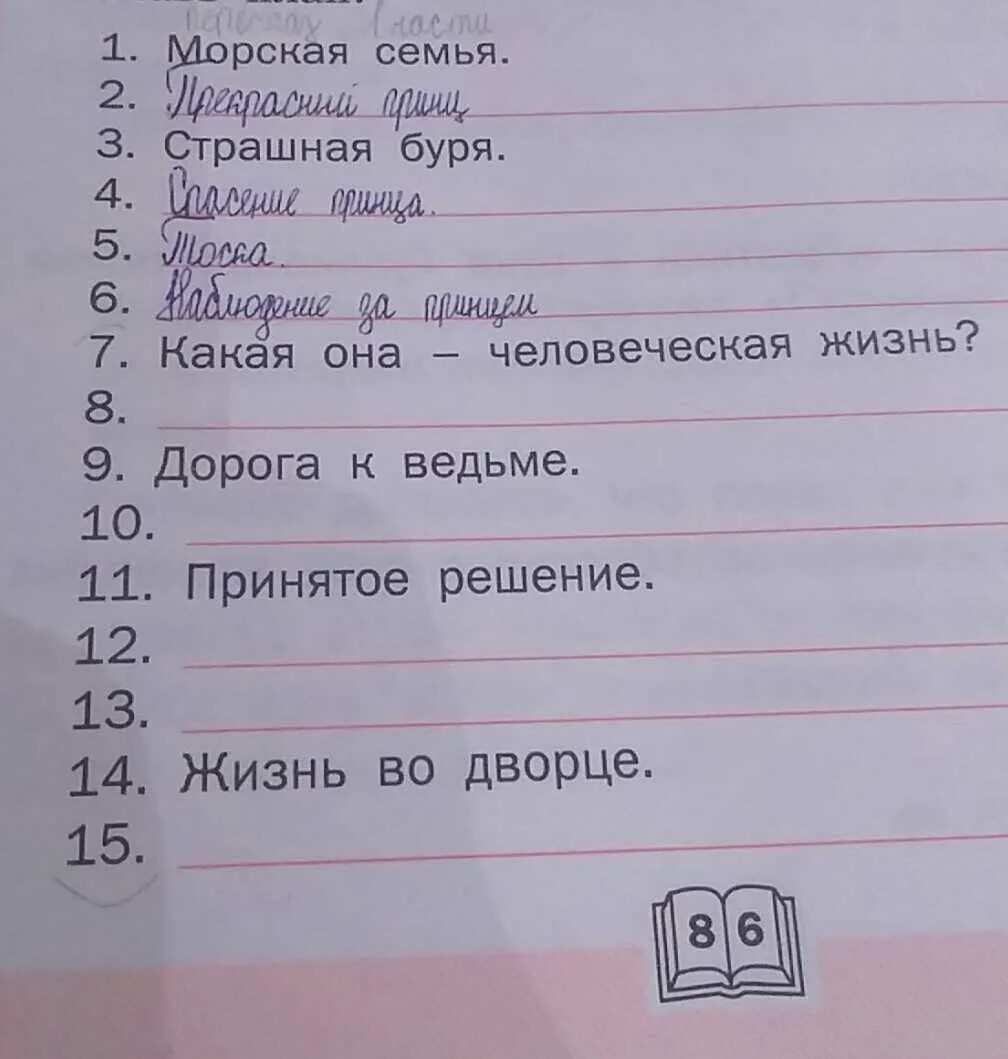 пересказ 1 части
1. Морская семья.
2. Прекрасний принц
3. Страшная буря.
4. Спасение принца.
5. Тоска.
6. Наблюдение за принцем
7. Какая она – человеческая жизнь?
8.
9. Дорога к ведьме.
10.
11. Принятое решение.
12.
13.
14. Жизнь во дворце.
15.
86